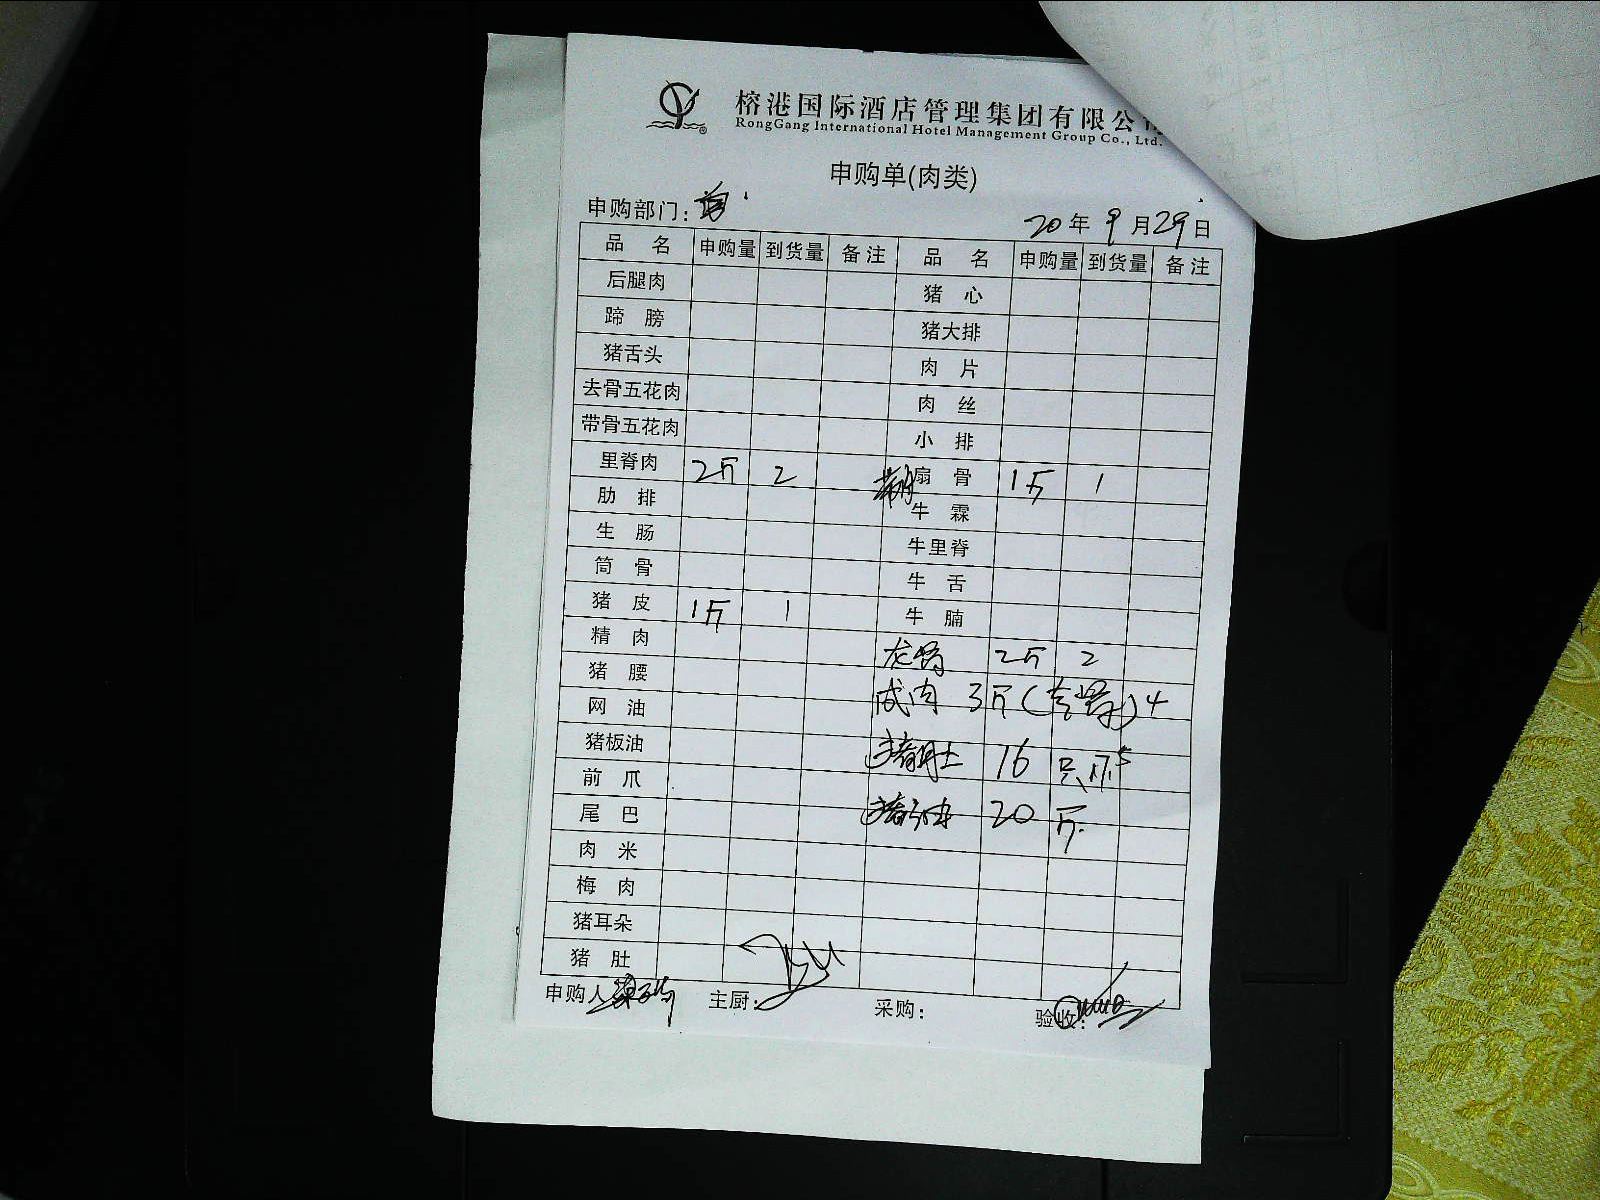 榕港国际酒店管理集团有限公
RongGang International Hotel Management Group Co., Ltd.
申购单(肉类)
申购部门:
20年9月29日
品 名 申购量 到货量 备注 品 名 申购量 到货量 备注
后腿肉 猪 心
蹄 膀 猪大排
猪舌头 肉 片
去骨五花肉 肉 丝
带骨五花肉 小 排
里脊肉 2斤 2 扇 骨 1斤 1
肋 排 牛 霖
生 肠 牛里脊
筒 骨 牛 舌
猪 皮 1斤 1 牛 腩
精 肉 龙骨 2斤 2
猪 腰 成肉 3斤(去骨)4
网 油
猪板油 猪肚 16 只
前 爪
尾 巴 猪油 20 斤
肉 米
梅 肉
猪耳朵
猪 肚
申购人 主厨: 采购: 验收: